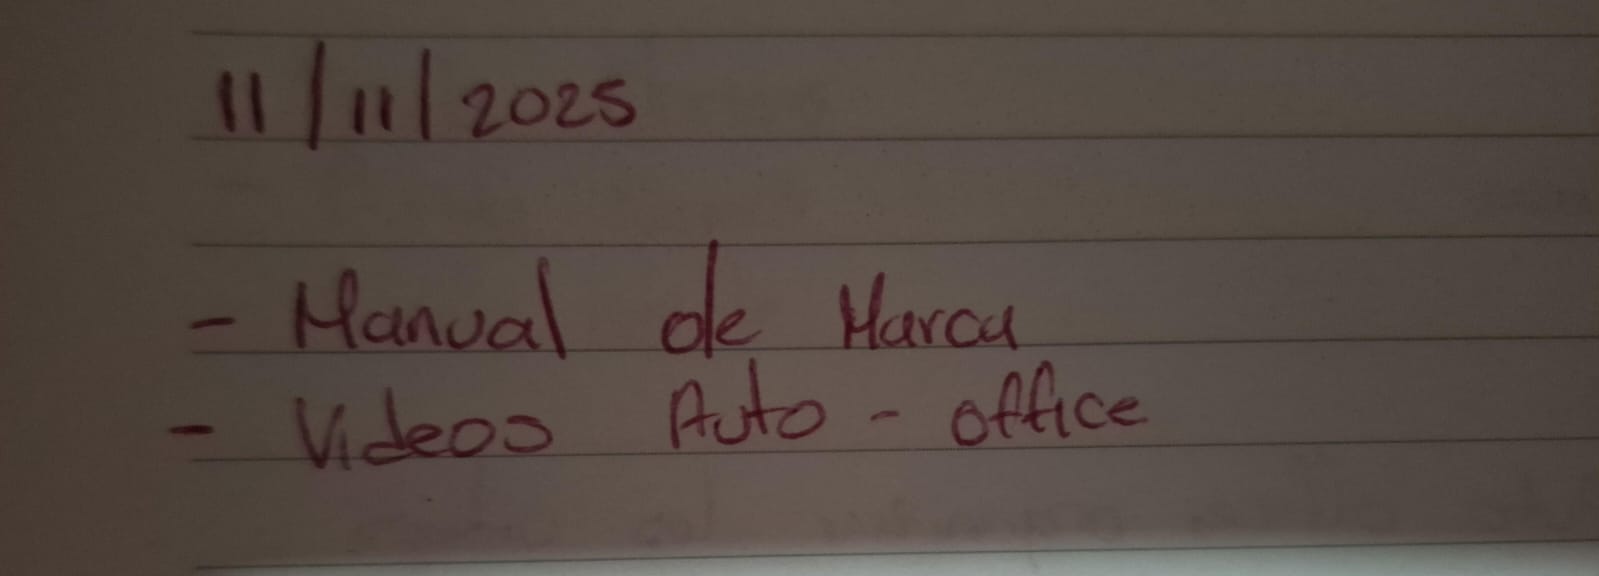 11/11/2025
- Manual de Marca
- Videos Auto - office